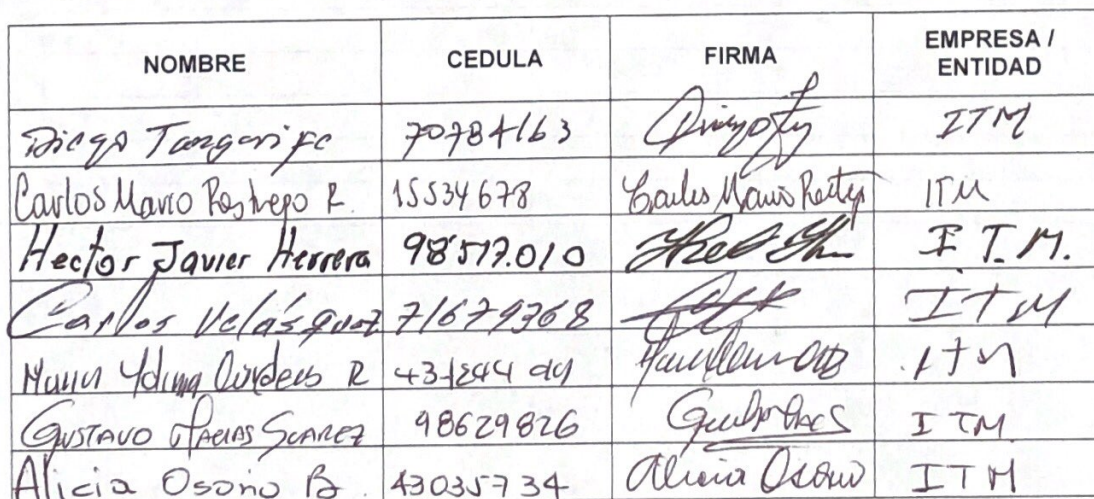 NOMBRE CEDULA FIRMA EMPRESA / ENTIDAD
Diego Tangarife 70784163 ITM
Carlos Mario Restrepo R. 15534678 Carlos Mario ITM
Hector Javier Herrera 98'577.010 I T.M.
Carlos Velásquez 71679368 ITM
R ITM
GUSTAVO SUAREZ 98629826 ITM
Alicia Osorio B. 43035734 Alicia Osorio ITM